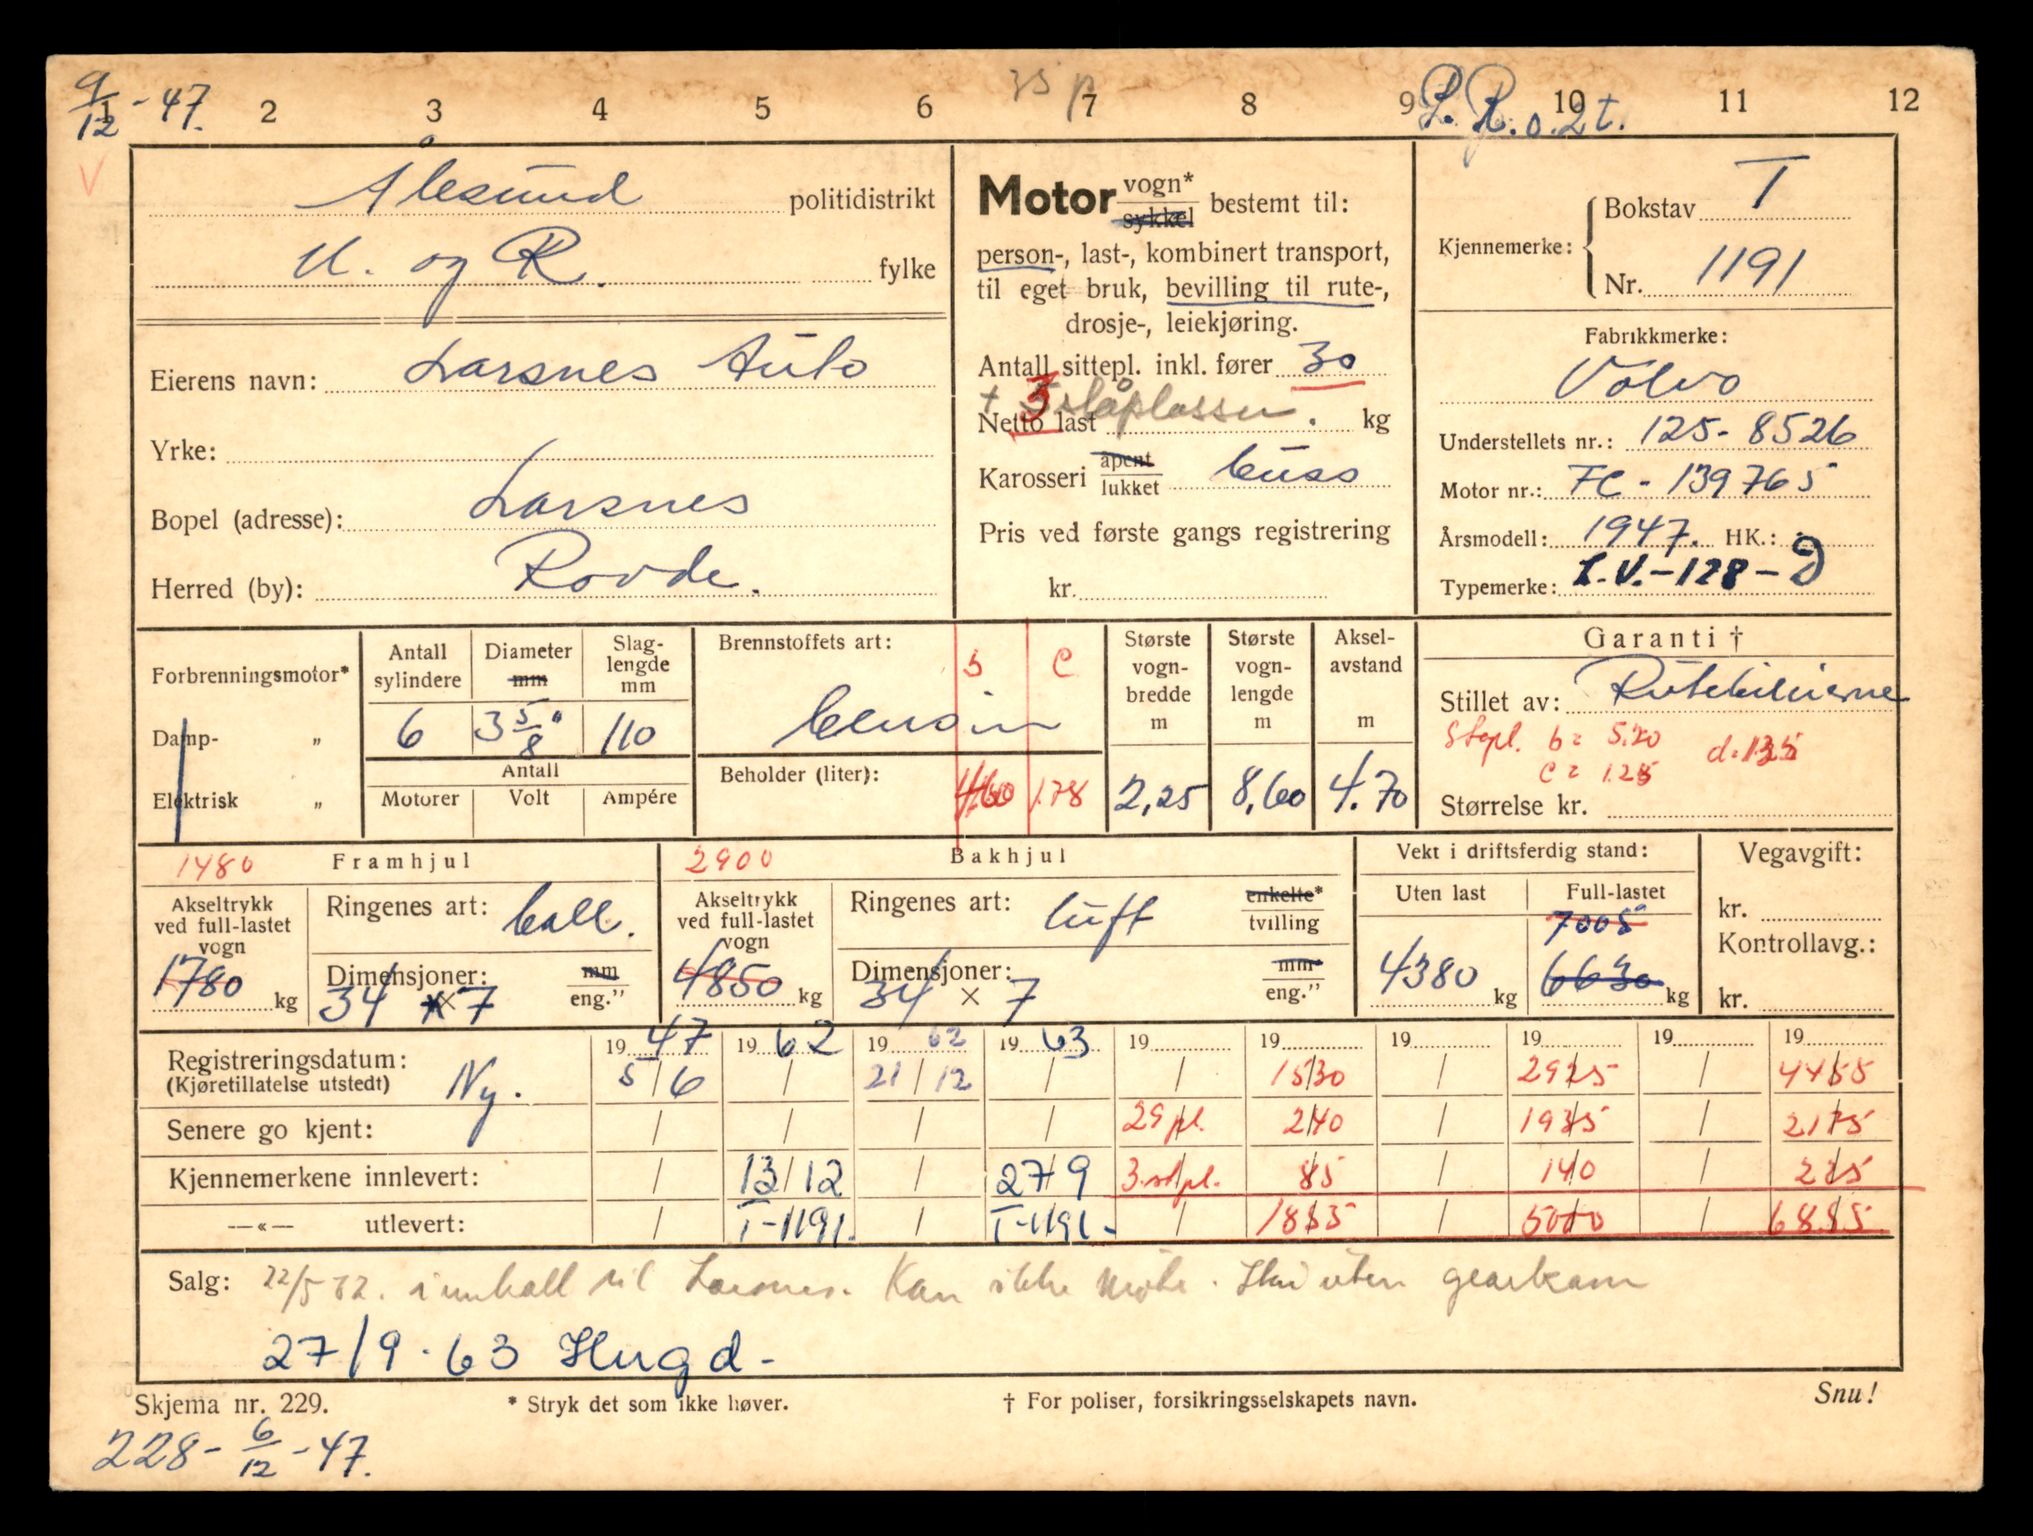 9/12 - 47.
1 2 3 4 5 6 7 8 9 10 11 12
35 p
L. R. o. 2 t.
V
Ålesund politidistrikt
M. og R. fylke
Eierens navn: Larsnes Auto
Yrke:
Bopel (adresse): Larsnes
Herred (by): Rovde.
Motor vogn* sykkel bestemt til:
person-, last-, kombinert transport,
til eget bruk, bevilling til rute-,
drosje-, leiekjøring.
Antall sittepl. inkl. fører 30
+ 3 ståplasser.
Netto last kg
Karosseri åpent lukket buss
Pris ved første gangs registrering
kr.
Kjennemerke: Bokstav T
Nr. 1191
Fabrikkmerke:
Volvo
Understellets nr.: 125-8526
Motor nr.: FC-139765
Årsmodell: 1947. HK.:
Typemerke: L.V.-128-D
Forbrenningsmotor*
Damp- „
Elektrisk „
Antall sylindere 6
Diameter mm 3 5/8"
Slag-lengde mm 110
Antall
Motorer Volt Ampére
Brennstoffets art: b c
bensin
Beholder (liter): 4.60 1.78
Største vogn-bredde m 2,25
Største vogn-lengde m 8,60
Aksel-avstand m 4.70
Garanti †
Stillet av: Rutebileierne
Stpl. b = 5.20 d = 1.35
c = 1.25
Størrelse kr.
1480 Framhjul
Akseltrykk ved full-lastet vogn 1780 kg
Ringenes art: ball.
Dimensjoner: 34 x 7 mm eng."
2900 Bakhjul
Akseltrykk ved full-lastet vogn 4850 kg
Ringenes art: luft enkelte* tvilling
Dimensjoner: 34 x 7 mm eng."
Vekt i driftsferdig stand:
Uten last 4380 kg
Full-lastet 7005 6630 kg
Vegavgift:
kr.
Kontrollavg.:
kr.
19 47 19 62 19 62 19 63 19 19 19 19 19 19
Registreringsdatum: (Kjøretillatelse utstedt) Ny. 5/6 / 21/12 / / 1530 / 2925 / 4455
Senere go kjent: / / / / 29 pl. 240 / 1935 / 2175
Kjennemerkene innlevert: / 13/12 / 27/9 3 stpl. 85 / 140 / 225
—«— utlevert: / T-1191. / T-1191- / 1855 / 5000 / 6855
Salg: 22/5 62. innkall til Larsnes. Kan ikke møte. uten
27/9-63 Hugd-
Skjema nr. 229. * Stryk det som ikke høver. † For poliser, forsikringsselskapets navn. Snu!
228 - 6/12 - 47.